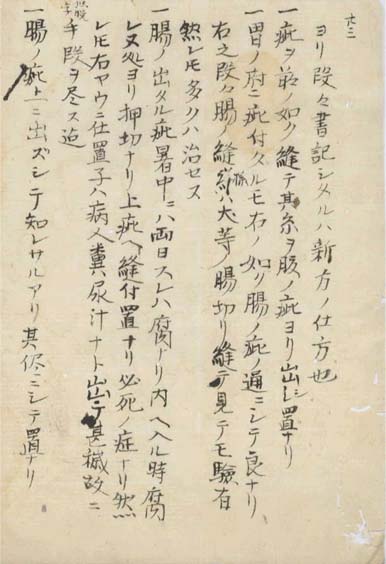 六三
ヨリ段々書記シタルハ新方ノ仕方也
一疵ヲ前ノ如ク縫テ其糸ヲ腹ノ疵ヨリ出シ置ナリ
一胃ノ府ニ疵付タルモ右ノ如ク腸ノ疵ノ通ニシテ良ナリ
右之段々腸ノ縫様ハ犬等ノ腸切リ縫テ見テモ験有
然レモ多クハ治セス
一腸ノ出タル疵暑中ニハ両日スレハ腐ナリ内ヘ入ル時腐
レタ処ヨリ押切ナリ上疵ヘ縫付置ナリ必死ノ症ナリ然
レモ右ヤウニ仕置子ハ病人糞尿汁ナト出テ甚穢故ニ
手段ヲ尽ス迄
一腸ノ疵上ニ出ズシテ知レサルアリ其侭ニシテ置ナリ